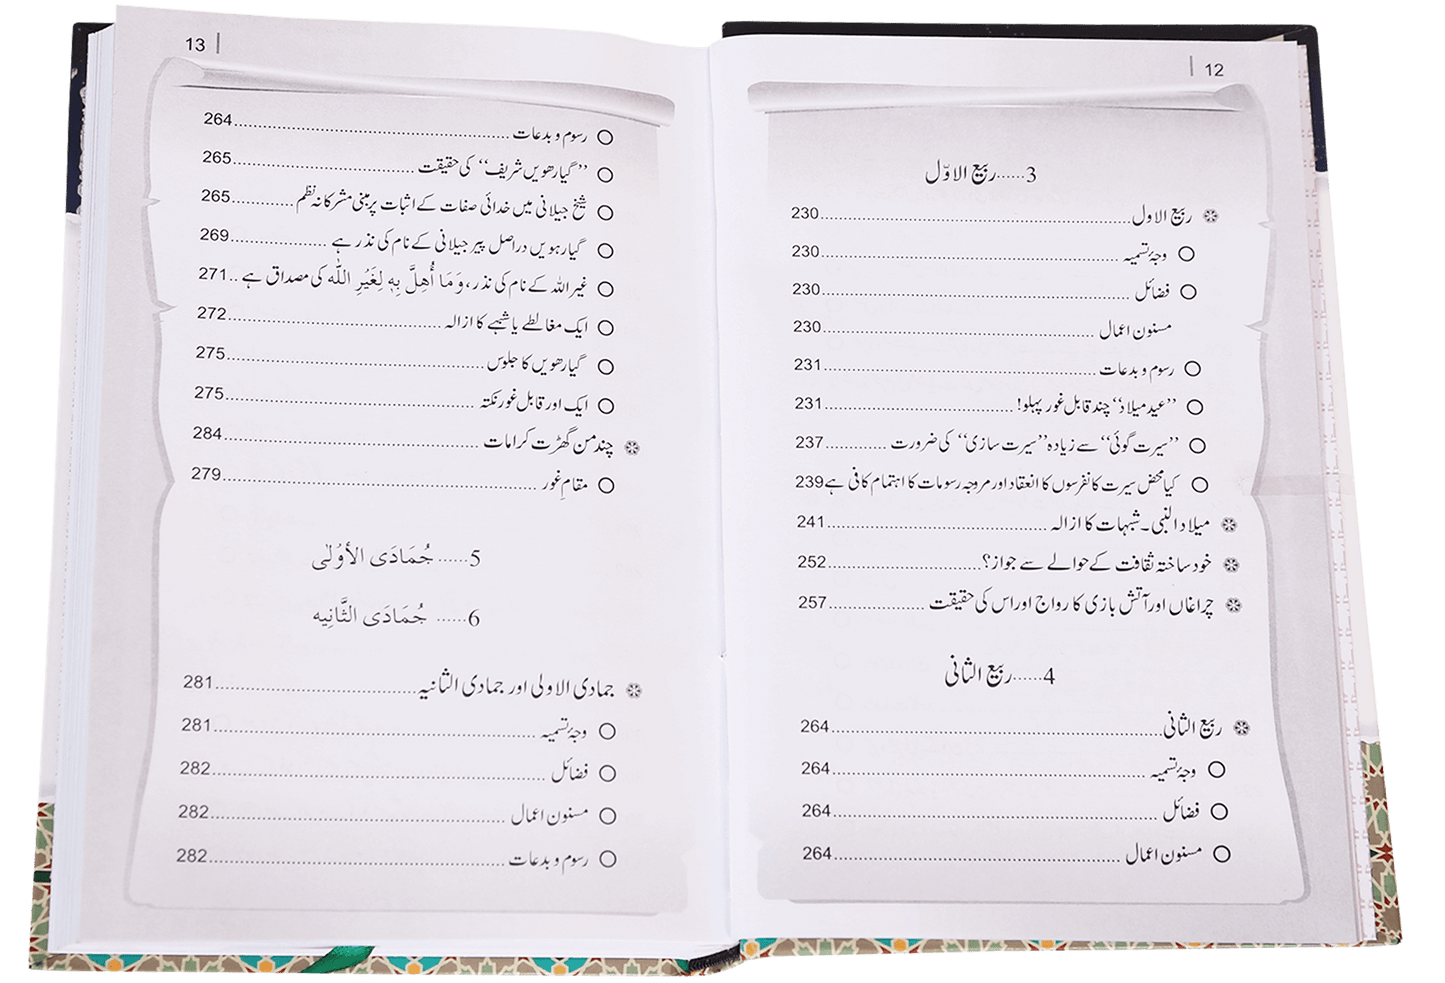 12
3......ربیع الاوّل
ربیع الاول......230
وجۂ تسمیہ......230
فضائل......230
مسنون اعمال......230
رسوم و بدعات......231
’’عید میلاد‘‘ چند قابل غور پہلو!......231
’’سیرت گوئی‘‘ سے زیادہ ’’سیرت سازی‘‘ کی ضرورت......237
کیا محض سیرت کانفرسوں کا انعقاد اور مروجہ رسومات کا اہتمام کافی ہے 239
میلاد النبی۔شبہات کا ازالہ......241
خود ساختہ ثقافت کے حوالے سے جواز؟......252
چراغاں اور آتش بازی کا رواج اور اس کی حقیقت......257
4......ربیع الثانی
ربیع الثانی......264
وجۂ تسمیہ......264
فضائل......264
مسنون اعمال......264
13
رسوم و بدعات......264
’’گیارھویں شریف‘‘ کی حقیقت......265
شیخ جیلانی میں خدائی صفات کے اثبات پر مبنی مشرکانہ نظم......265
گیارہویں دراصل پیر جیلانی کے نام کی نذر ہے......269
غیر اللہ کے نام کی نذر، وَمَا أُهِلَّ بِهِ لِغَيْرِ اللّٰه کی مصداق ہے..271
ایک مغالطے یا شبہے کا ازالہ......272
گیارھویں کا جلوس......275
ایک اور قابل غور نکتہ......275
چند من گھڑت کرامات......284
مقامِ غور......279
5......جُمَادَى الأُوْلٰى
6......جُمَادَى الثَّانِيه
جمادی الاولی اور جمادی الثانیہ......281
وجۂ تسمیہ......281
فضائل......282
مسنون اعمال......282
رسوم و بدعات......282